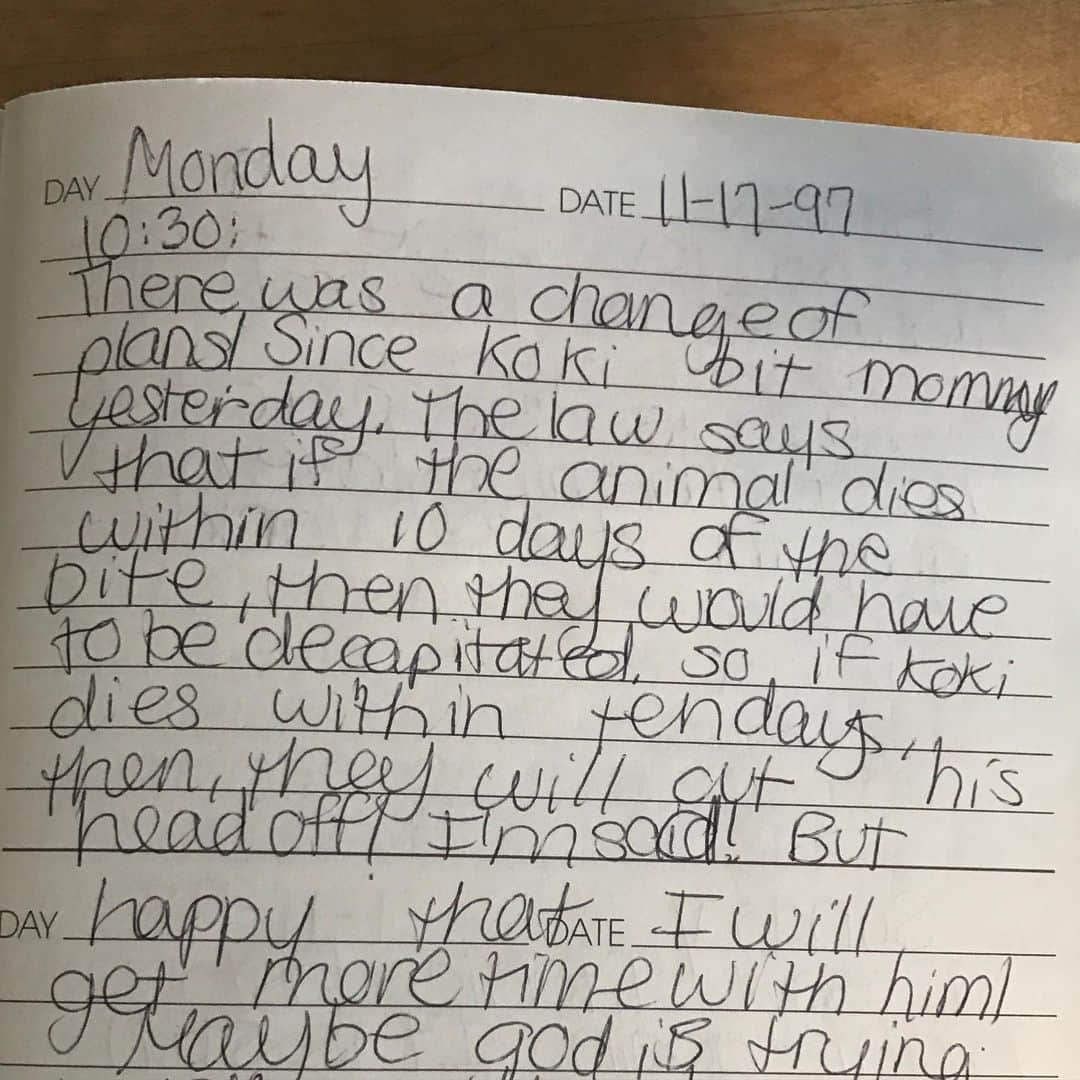 DAY Monday DATE 11-17-97
10:30:
There was a change of
plans! Since Koki bit mommy
yesterday, the law says
that if the animal dies
within 10 days of the
bite, then they would have
to be decapitated. so, if Koki
dies within ten days,
then, they will cut his
head off! I'm sad! But
DAY happy that DATE I will
get more time with him!
Maybe god is trying